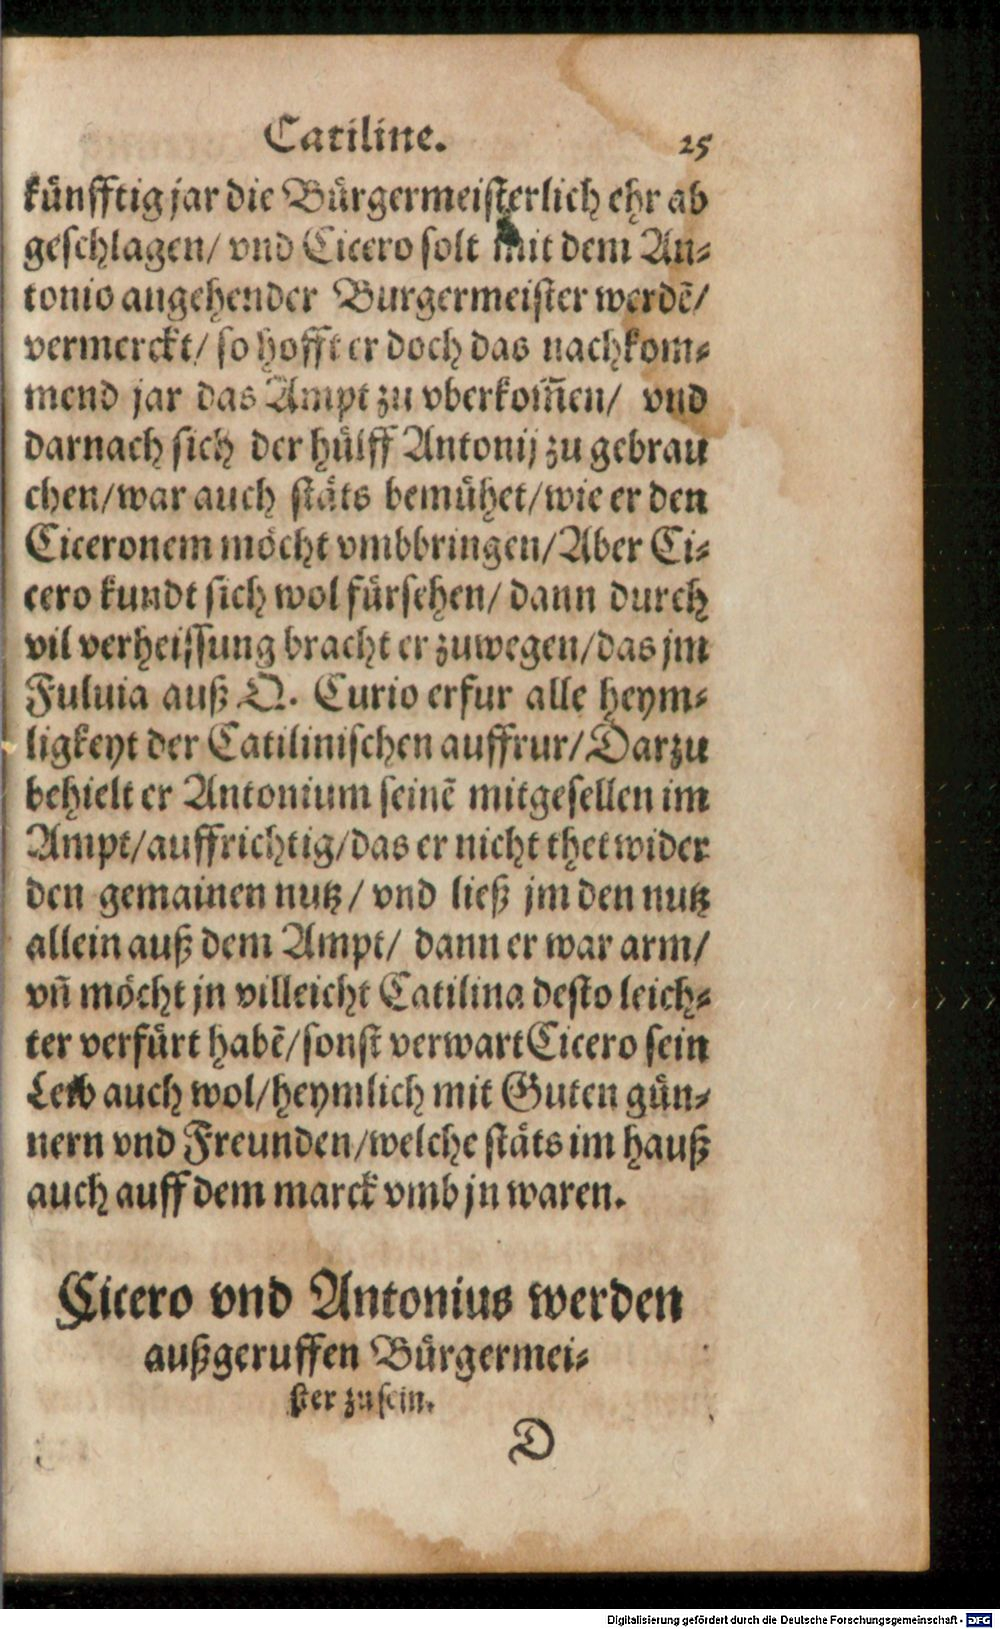 Catiline. 25
künfftig jar die Bürgermeisterlich ehr ab
geschlagen/ vnd Cicero solt mit dem An-
tonio angehender Burgermeister werdẽ/
vermerckt/ so hofft er doch das nachkom-
mend jar das Ampt zu vberkom̃en/ vnd
darnach sich der hülff Antonij zu gebrau
chen/war auch stäts bemühet/wie er den
Ciceronem möcht vmbbringen/Aber Ci-
cero kundt sich wol fürsehen/ dann durch
vil verheissung bracht er zuwegen/das jm
Fuluia auß Q. Curio erfur alle heym-
ligkeyt der Catilinischen auffrur/Darzu
behielt er Antonium seinẽ mitgesellen im
Ampt/auffrichtig/das er nicht thet wider
den gemainen nutz/ vnd ließ jm den nutz
allein auß dem Ampt/ dann er war arm/
vñ möcht jn villeicht Catilina desto leich-
ter verfürt habẽ/sonst verwart Cicero sein
Leib auch wol/heymlich mit Guten gün-
nern vnd Freunden/welche stäts im hauß
auch auff dem marck vmb jn waren.
Cicero vnd Antonius werden
außgeruffen Bürgermei-
ster zu sein.
D
Digitalisierung gefördert durch die Deutsche Forschungsgemeinschaft - DFG